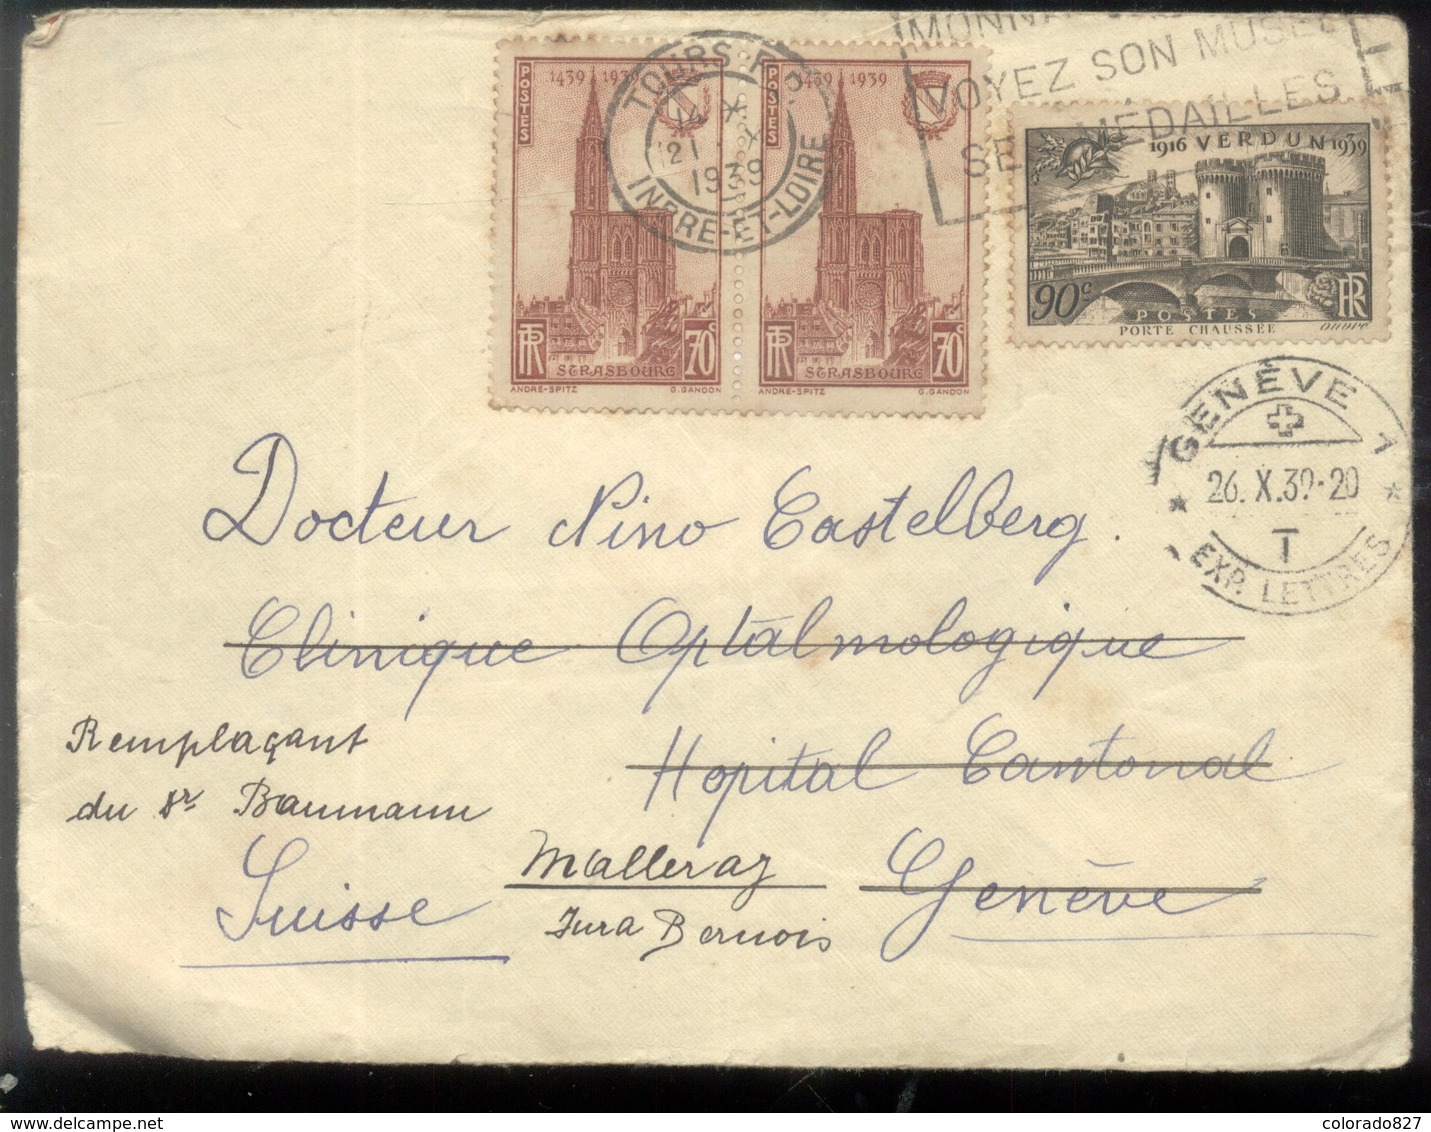 MONNA
VOYEZ SON MUSÉE
MÉDAILLES
TOURS R.P.
14 *
21 X
1939
INDRE-ET-LOIRE
POSTES
1439 1939
RF
STRASBOURG
70c
ANDRÉ-SPITZ G.GANDON
POSTES
1439 1939
RF
STRASBOURG
70c
ANDRÉ-SPITZ G.GANDON
1916 VERDUN 1939
90c
POSTES
RF
PORTE CHAUSSÉE
ouvré
GENÈVE 1
* 26.X.39-20 *
T
EXP. LETTRES
Docteur Nino Castelberg.
Clinique Optalmologique
Hopital Cantonal
Remplaçant
du Dr Baumann
Suisse
Malleray
Genève
Jura Bernois
www.delcampe.net
colorado827